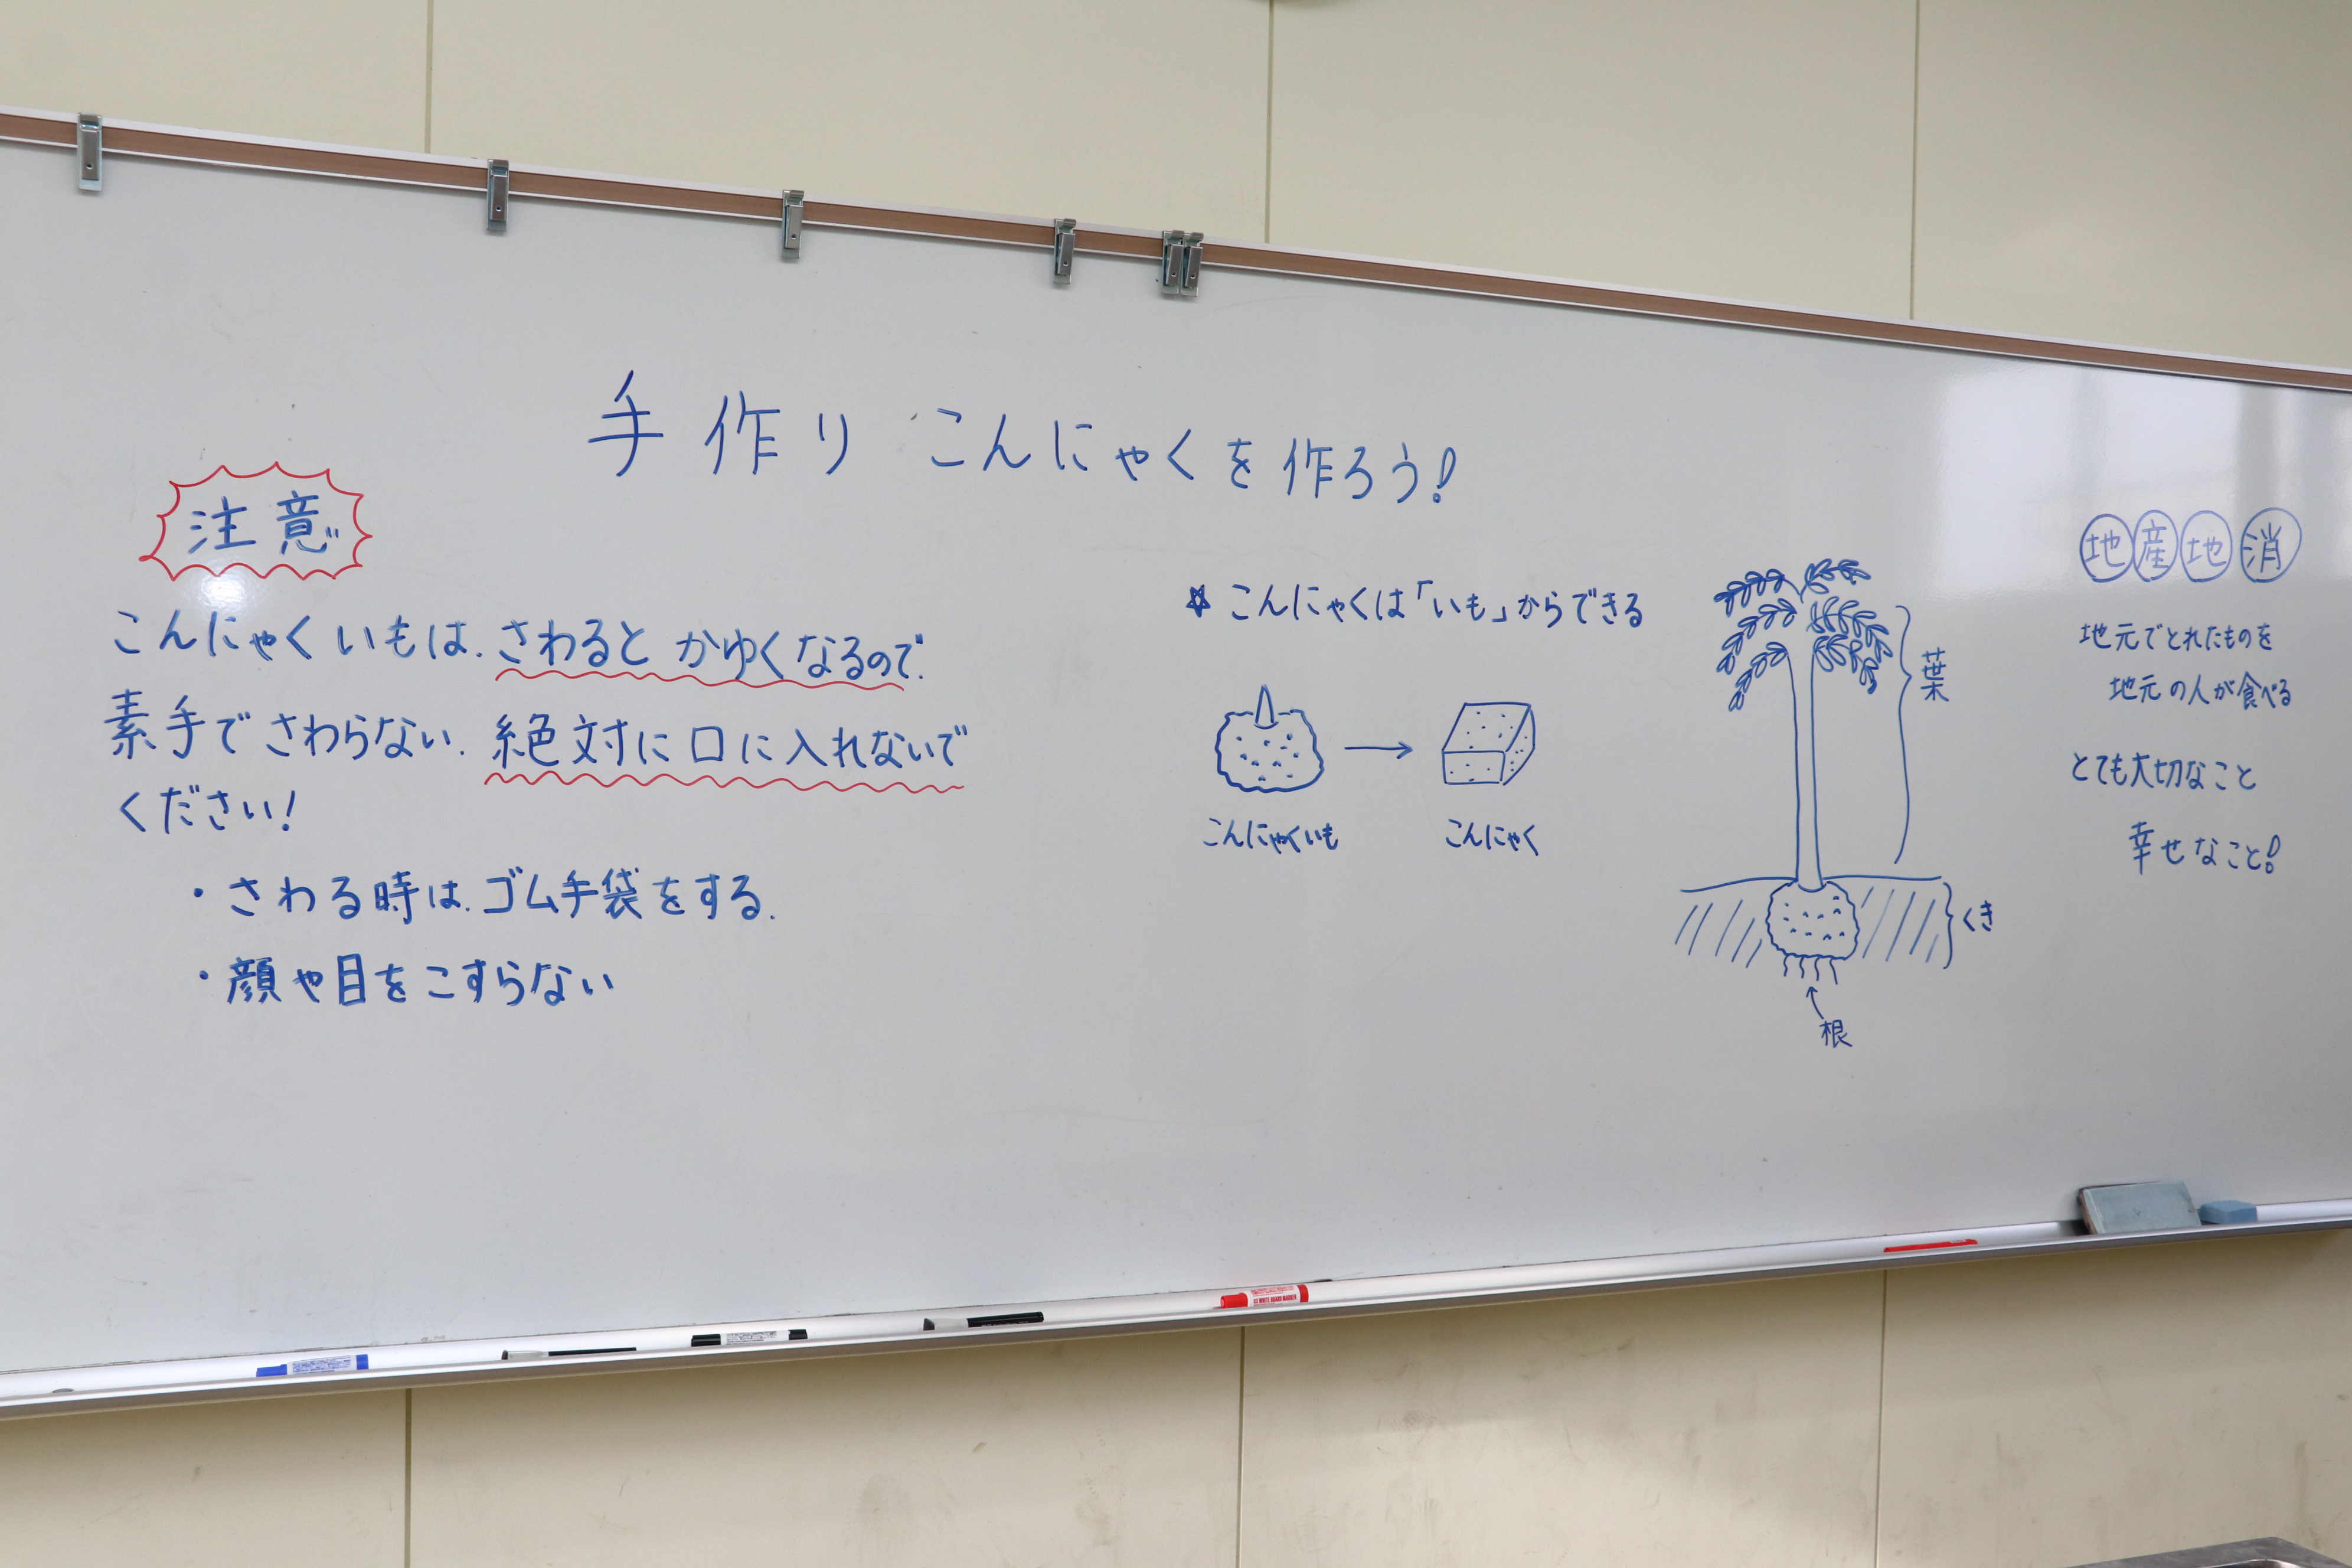 手作りこんにゃくを作ろう!
注意
こんにゃくいもは、さわるとかゆくなるので、
素手でさわらない、絶対に口に入れないで
ください!
・さわる時は、ゴム手袋をする。
・顔や目をこすらない
☆こんにゃくは「いも」からできる
こんにゃくいも → こんにゃく
葉
くき
根
地産地消
地元でとれたものを
地元の人が食べる
とても大切なこと
幸せなこと!
WHITE BOARD MARKER